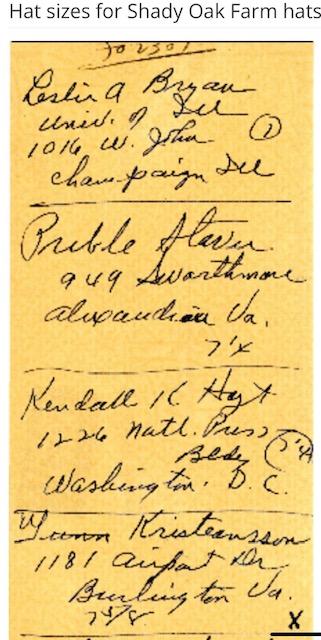 Hat sizes for Shady Oak Farm hats
Leslie A Bryan
Univ. of Ill
1016 W. John
Champaign Ill
Preble Staver
949 Swarthmore
Alexandria Va.
Kendall K Hoyt
1226 Natl. Press
Bldg
Washington. D.C.
Gunn Kristeansson
1181 Airport Dr
Burlington Va.
7 5/8
X